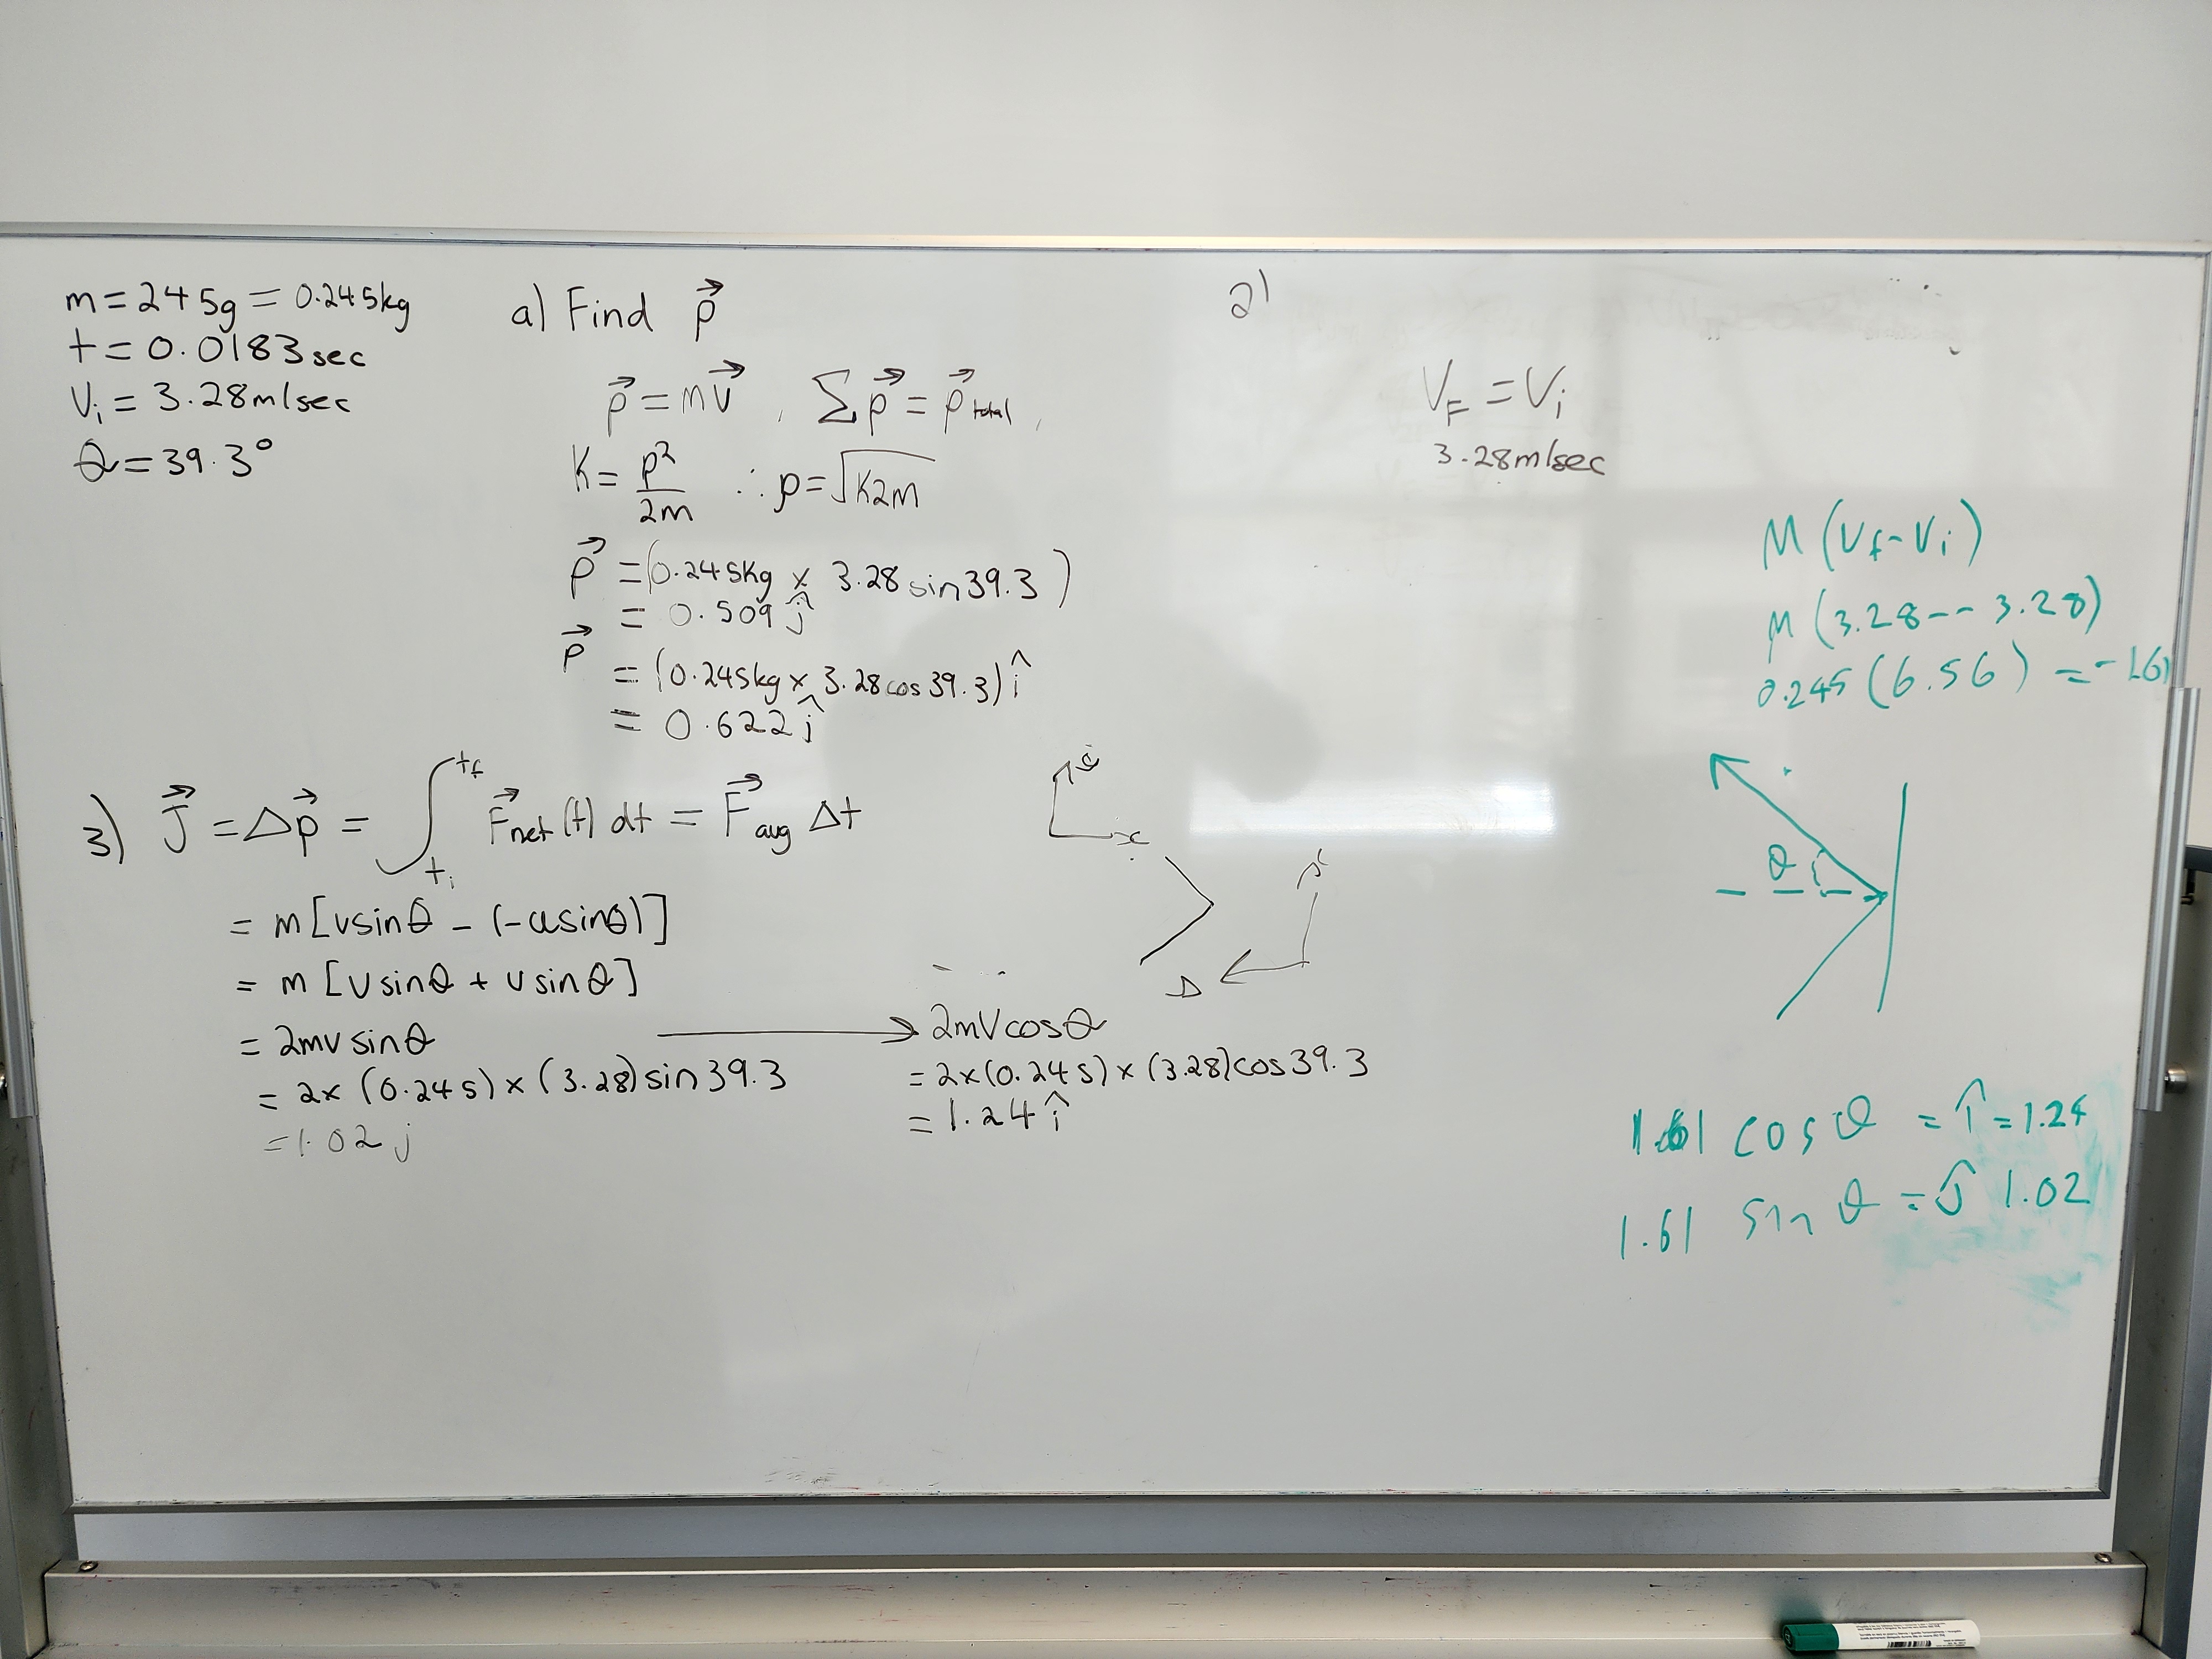 m = 245g = 0.245kg
t = 0.0183 sec
Vi = 3.28m/sec
θ = 39.3°
a) Find p⃗
p⃗ = mv⃗ , Σp⃗ = p⃗ total ,
K = p²/2m ∴ p = √K2m
p⃗ = (0.245kg × 3.28 sin 39.3)
= 0.509 ĵ
p⃗
= (0.245kg × 3.28 cos 39.3) î
= 0.622 ĵ
2)
VF = Vi
3.28m/sec
M (Vf - Vi)
M (3.28 - - 3.28)
0.245 (6.56) = -1.61
3) J⃗ = Δp⃗ = ∫ti^tf F⃗net (t) dt = F⃗avg Δt
= m [vsinθ - (-usinθ)]
= m [vsinθ + usinθ]
= 2mv sinθ
= 2× (0.245) × (3.28) sin 39.3
= 1.02 j
2mVcosθ
= 2×(0.245) × (3.28) cos 39.3
= 1.24 î
x
θ
1.61 cos θ = î = 1.24
1.61 sin θ = ĵ 1.02